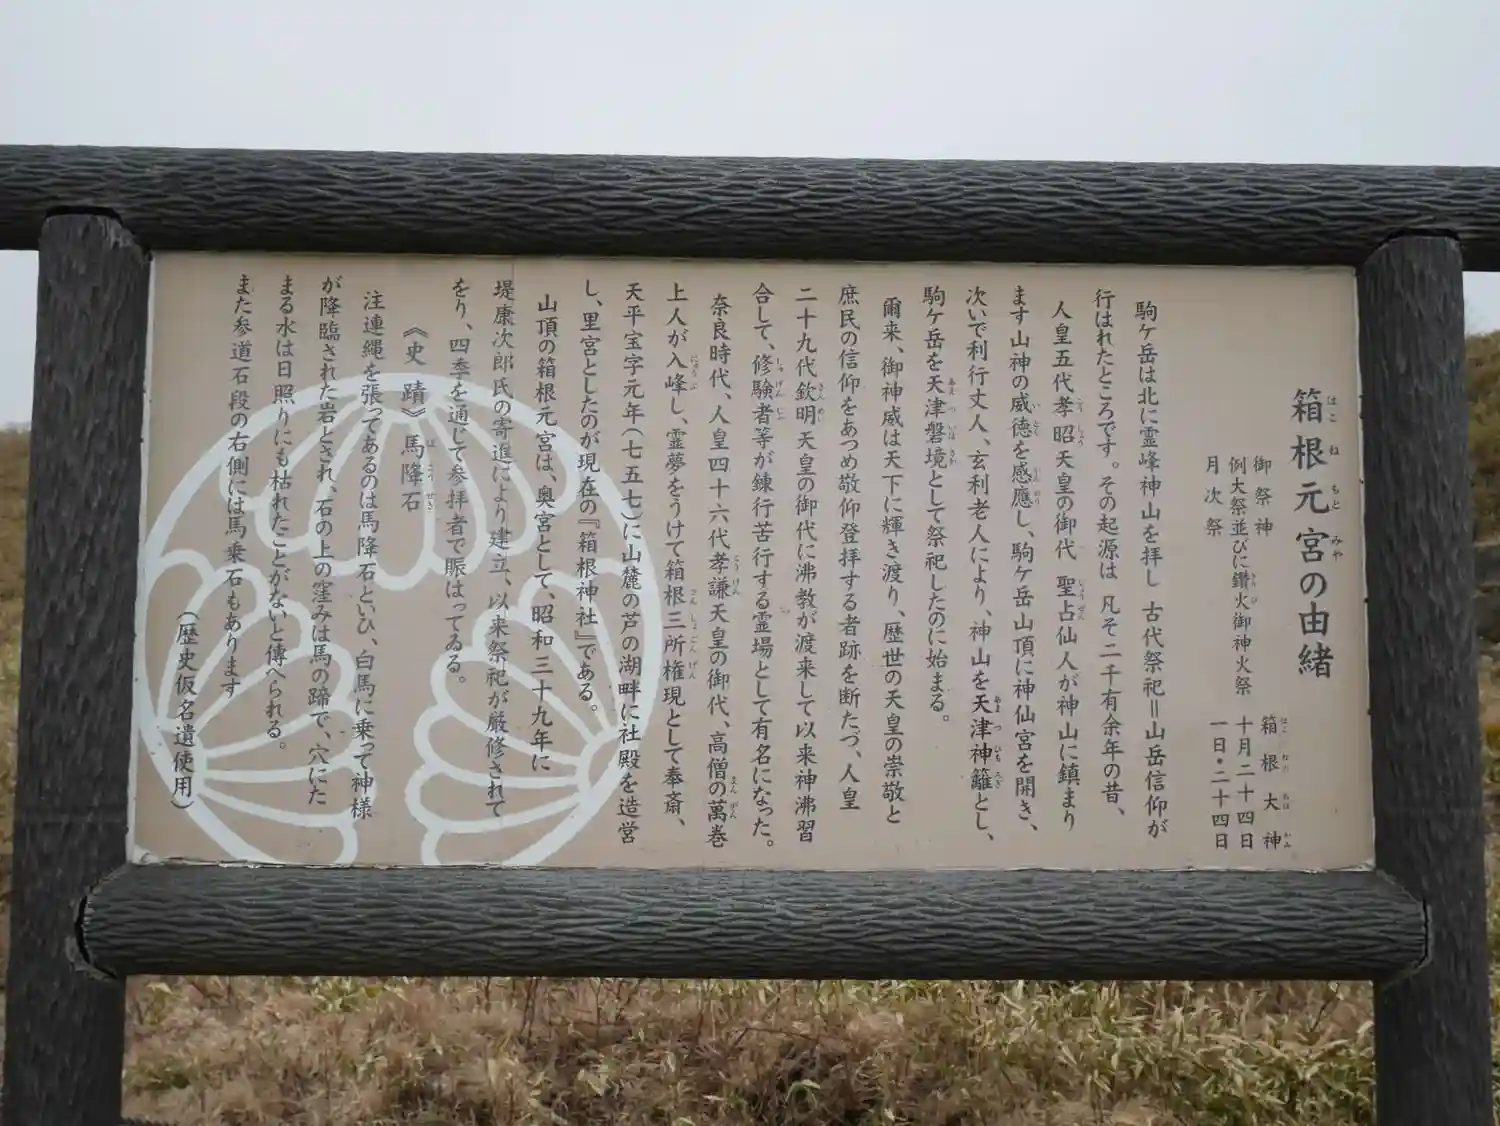 箱根元宮の由緒
御祭神 箱根大神
例大祭並びに鑽火御神火祭 十月二十四日
月次祭 一日・二十四日
駒ケ岳は北に霊峰神山を拝し 古代祭祀＝山岳信仰が
行はれたところです。その起源は 凡そ二千有余年の昔、
人皇五代孝昭天皇の御代 聖占仙人が神山に鎮まり
ます山神の威徳を感應し、駒ケ岳山頂に神仙宮を開き、
次いで利行丈人、玄利老人により、神山を天津神籬とし、
駒ケ岳を天津磐境として祭祀したのに始まる。
爾来、御神威は天下に輝き渡り、歴世の天皇の崇敬と
庶民の信仰をあつめ敬仰登拝する者跡を断たつ、人皇
二十九代欽明天皇の御代に沸教が渡来して以来神沸習
合して、修験者等が錬行苦行する霊場として有名になった。
奈良時代、人皇四十六代孝謙天皇の御代、高僧の萬巻
上人が入峰し、霊夢をうけて箱根三所権現として奉斎、
天平宝字元年（七五七）に山麓の芦の湖畔に社殿を造営
し、里宮としたのが現在の『箱根神社』である。
山頂の箱根元宮は、奥宮として、昭和三十九年に
堤康次郎氏の寄進により建立、以来祭祀が厳修されて
をり、四季を通じて参拝者で賑はってゐる。
《史蹟》馬降石
注連縄を張ってあるのは馬降石といひ、白馬に乗って神様
が降臨された岩とされ、石の上の窪みは馬の蹄で、穴にた
まる水は日照りにも枯れたことがないと傳へられる。
また参道石段の右側には馬乗石もあります
（歴史仮名遣使用）